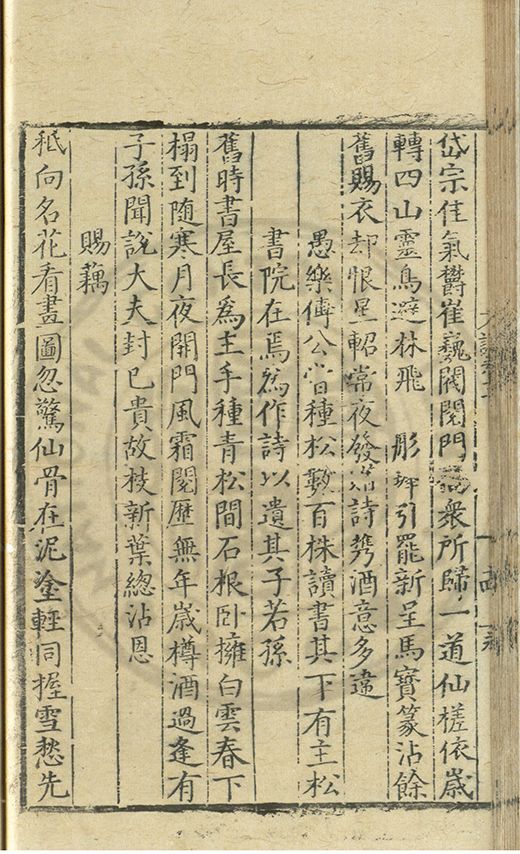 岱宗佳氣欝崔巍閥閱門高衆所歸一道仙槎依歲
轉四山靈鳥避林飛　彤墀引罷新呈馬寶篆沾餘
舊賜衣却恨星軺常夜發詩携酒意多違
愚樂傅公嘗種松數百株讀書其下有主松
書院在焉爲作詩以遺其子若孫
舊時書屋長爲主手種青松間石根卧擁白雲春下
榻到隨寒月夜開門風霜閱歷無年歲樽酒過逢有
子孫聞說大夫封已貴故枝新葉總沾恩
賜藕
秪向名花看畫圖忽驚仙骨在泥塗輕同握雪愁先